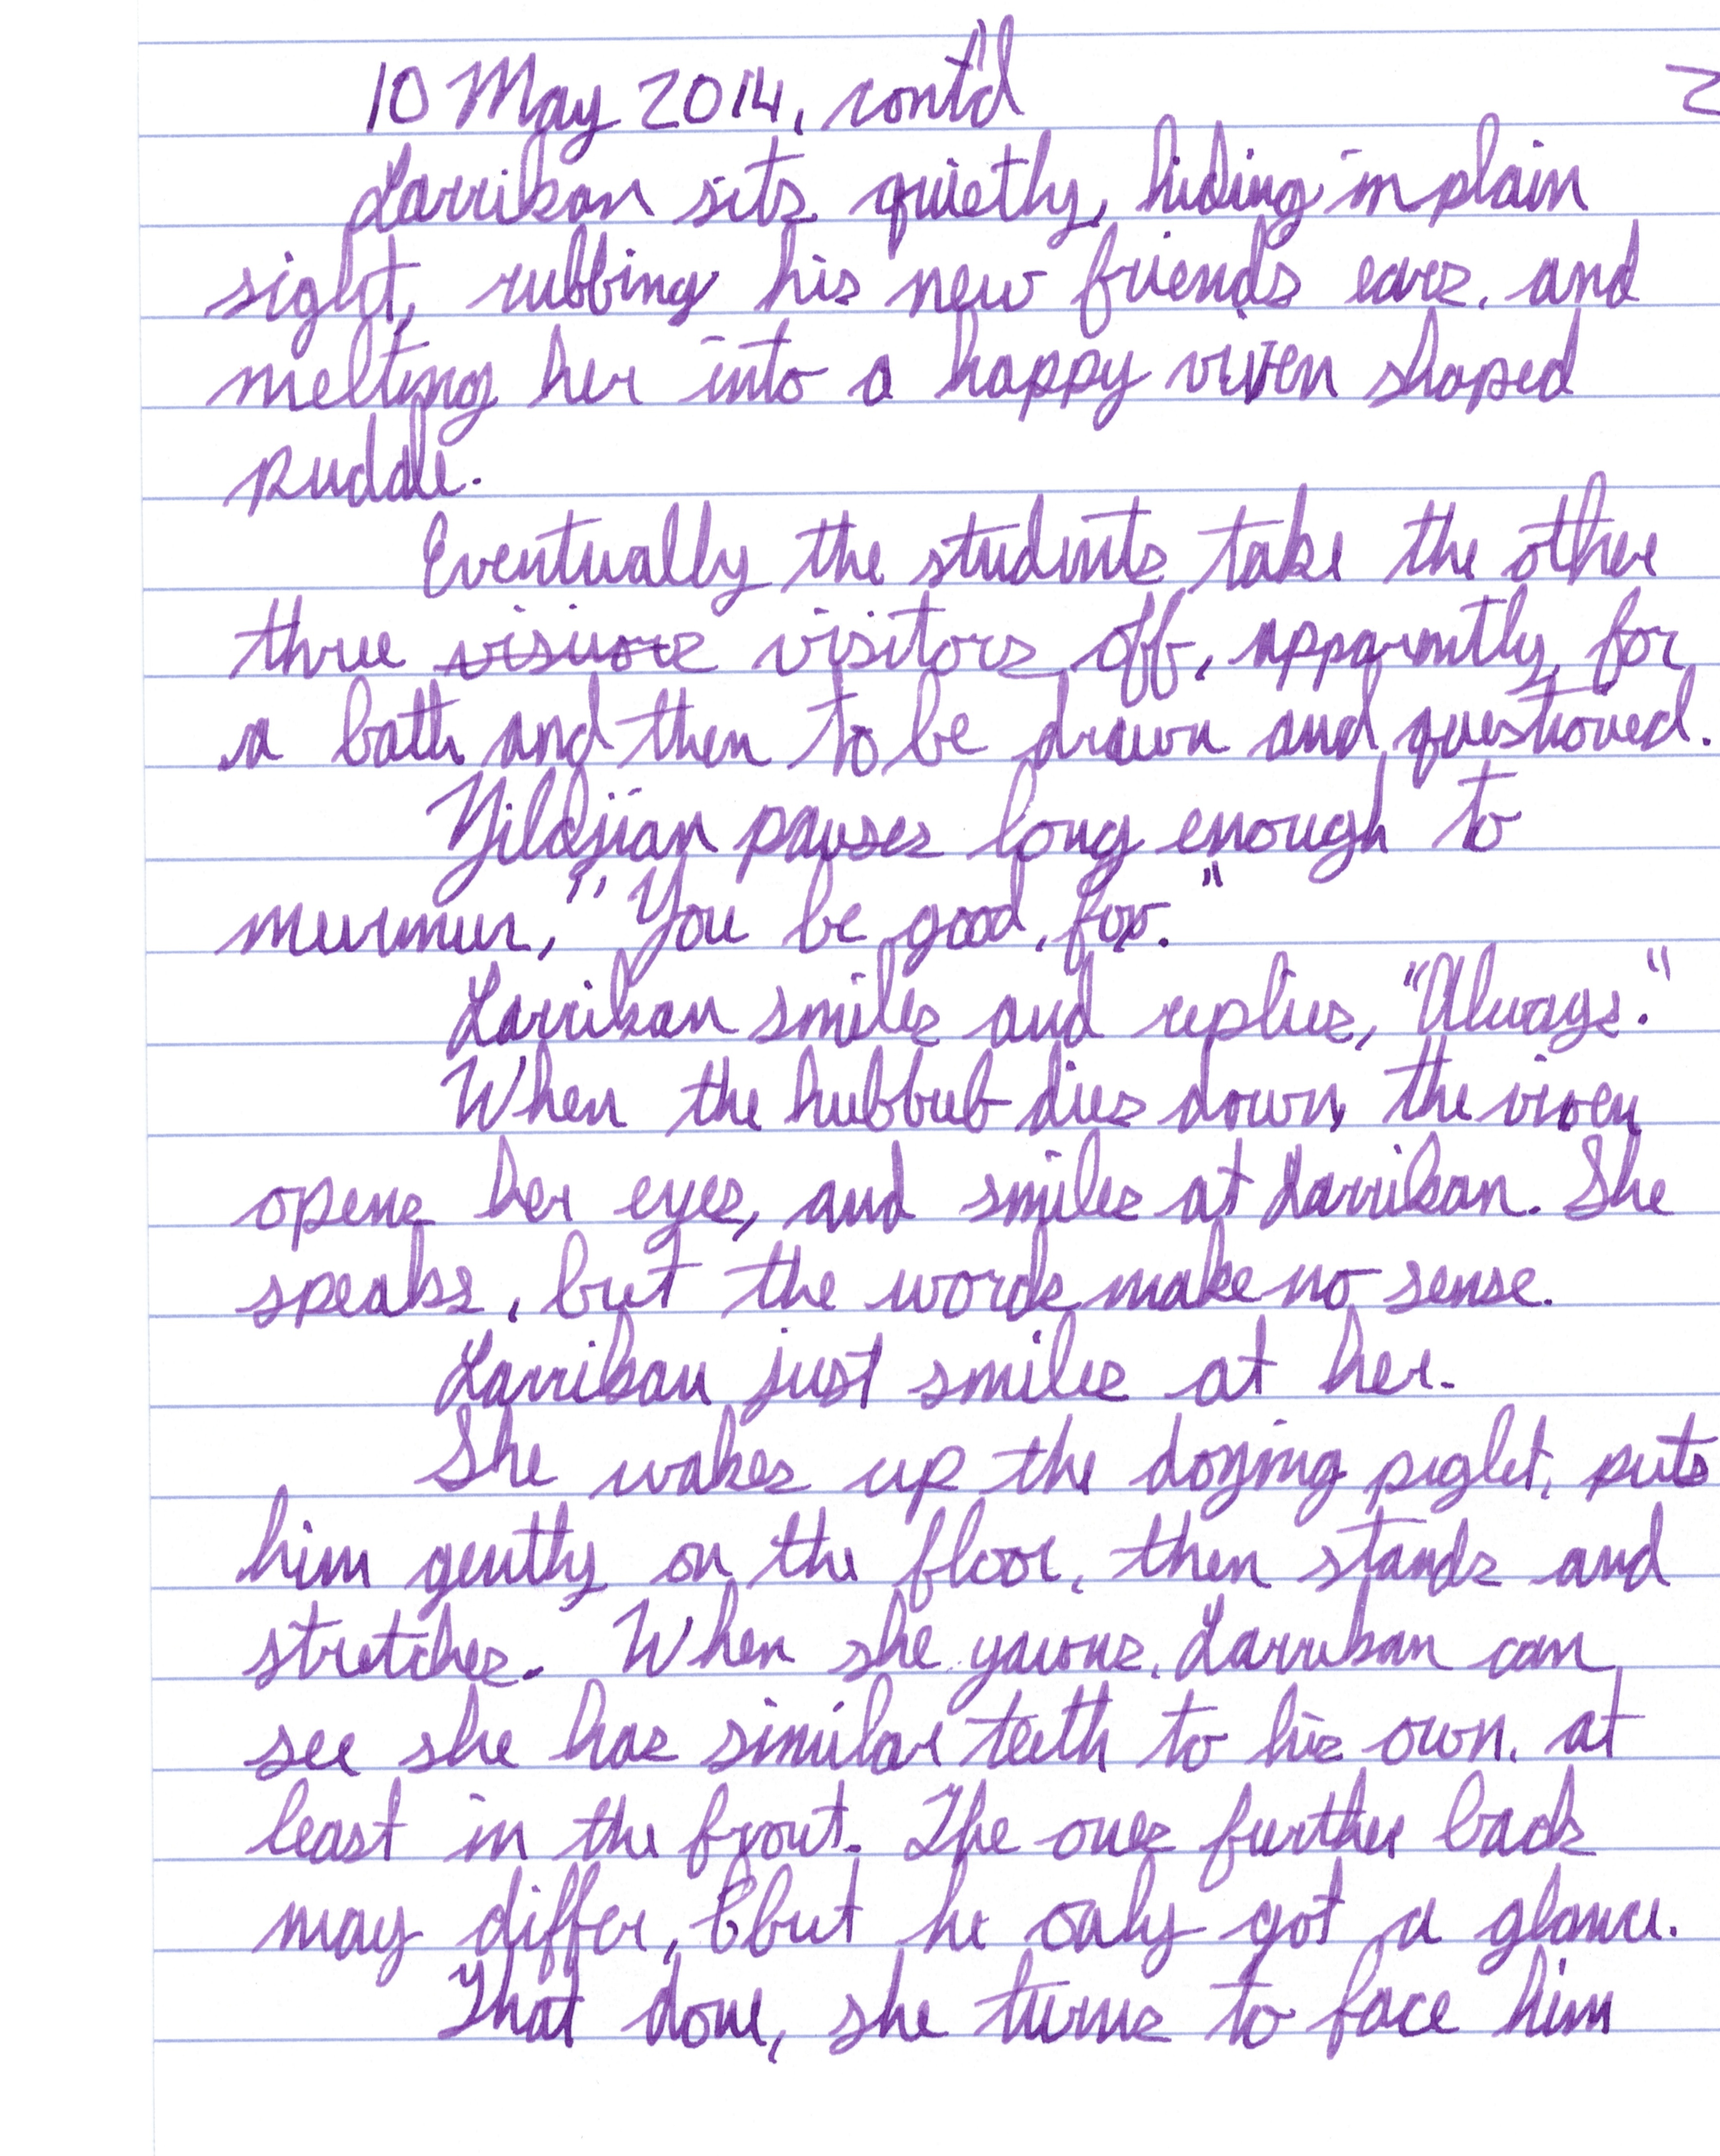 10 May 2014, cont'd 2
Larrikan sits quietly, hiding in plain
sight, rubbing his new friend's ears, and
melting her into a happy vixen shaped
puddle.
Eventually the students take the other
three visitors off, apparently, for
a bath and then to be drawn and questioned.
Yildjian pauses long enough to
murmur, "You be good, fox."
Larrikan smiles and replies, "Always."
When the hubbub dies down, the vixen
opens her eyes, and smiles at Larrikan. She
speaks, but the words make no sense.
Larrikan just smiles at her.
She wakes up the dozing piglet, puts
him gently on the floor, then stands and
stretches. When she yawns, Larrikan can
see she has similar teeth to his own, at
least in the front. The ones further back
may differ, but he only got a glance.
That done, she turns to face him